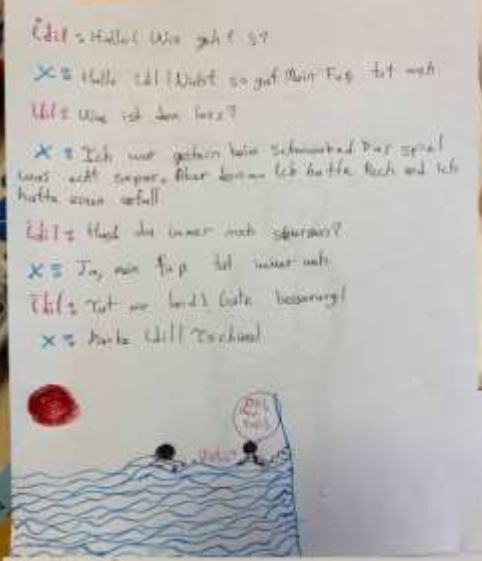 İdil: Hallo! Wie geht s?
X: Hallo İdil! Nicht so gut Mein Fuß tut weh
İdil: Was ist denn loss?
X: Ich war gestern beim Schwimmbad Das spiel
was echt super. Aber dann Ich hatte Pech und ich
hatte einen unfall
İdil: Hast du immer noch schmerzen?
X: Ja, mein fuß tut immer weh
İdil: Tut mir leid! Gute besserung!
X: Danke İdil! Tschüss!
Mein